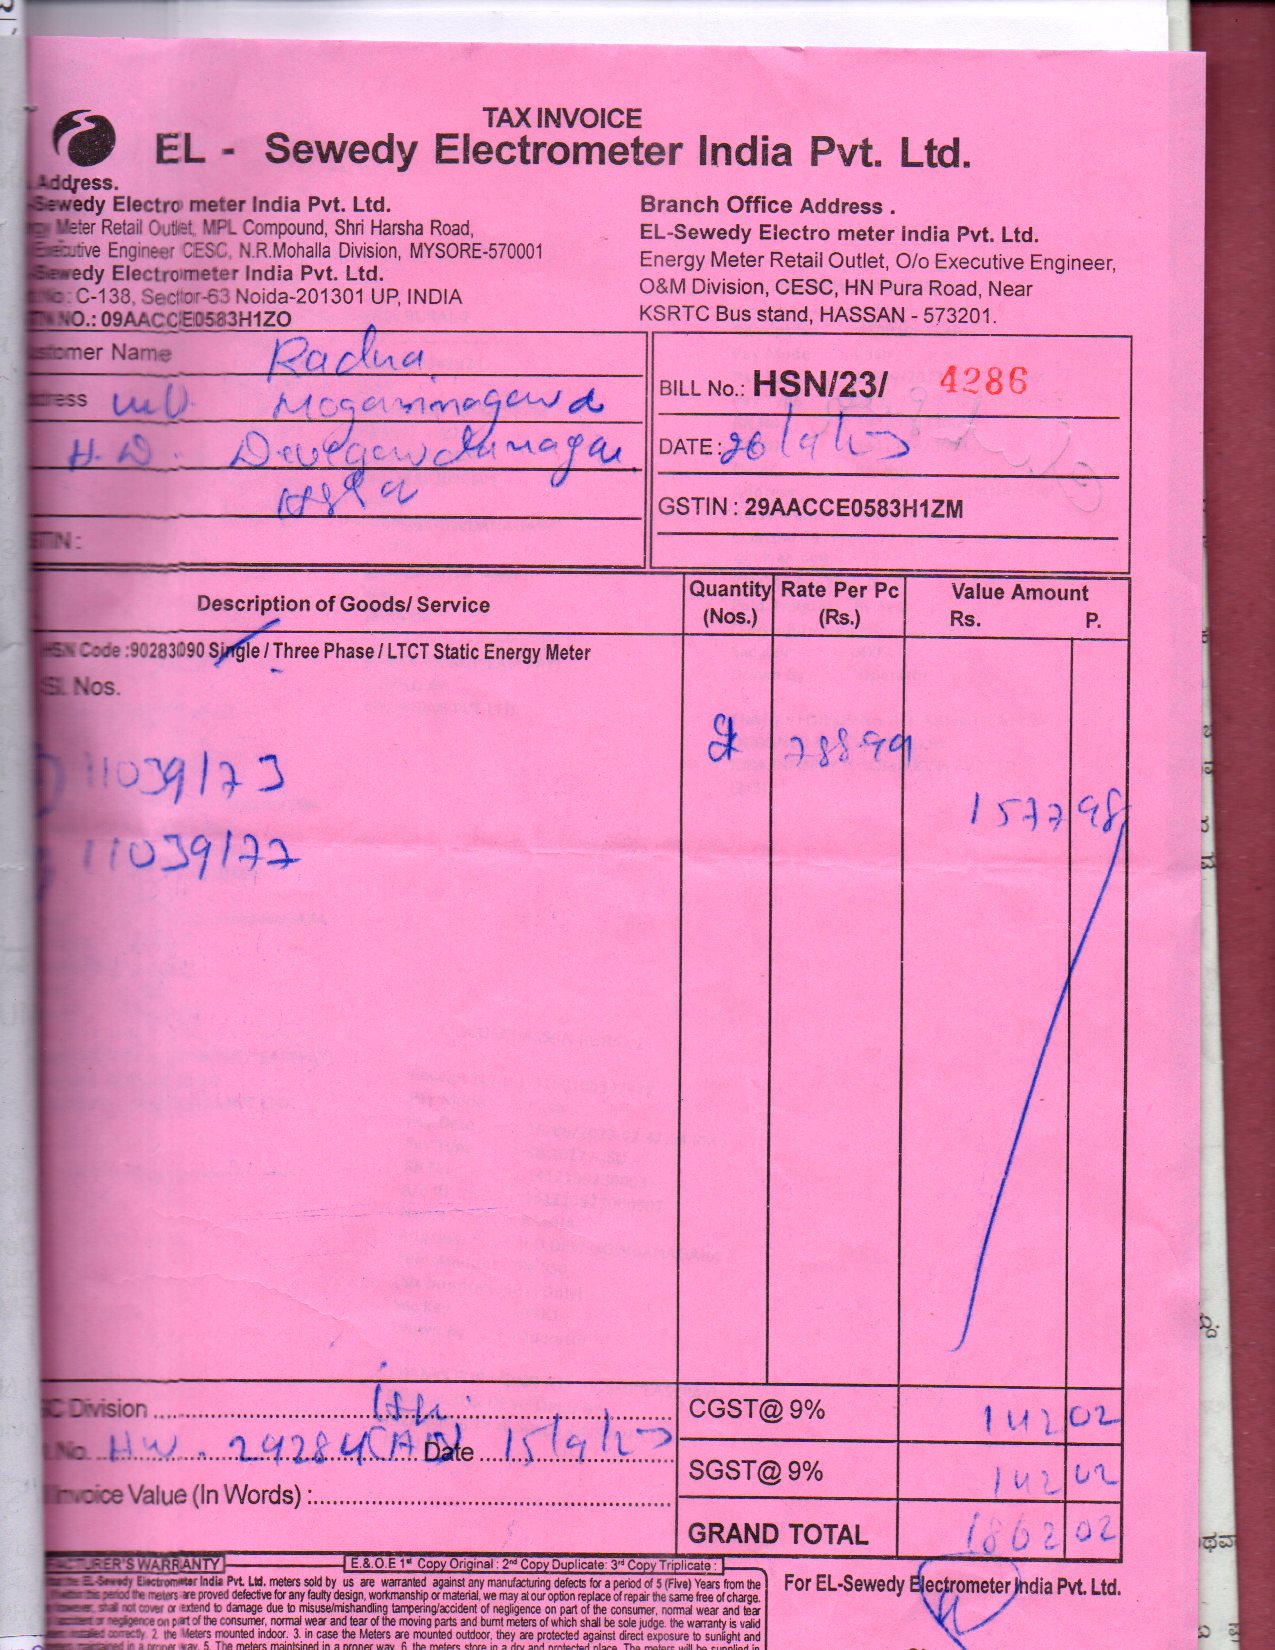 TAX INVOICE
EL - Sewedy Electrometer India Pvt. Ltd.
Address.
Sewedy Electro meter India Pvt. Ltd.
Meter Retail Outlet, MPL Compound, Shri Harsha Road,
Executive Engineer CESC, N.R.Mohalla Division, MYSORE-570001
Sewedy Electrometer India Pvt. Ltd.
C-138, Sector-63 Noida-201301 UP, INDIA
NO.: 09AACCE0583H1ZO
Branch Office Address .
EL-Sewedy Electro meter India Pvt. Ltd.
Energy Meter Retail Outlet, O/o Executive Engineer,
O&M Division, CESC, HN Pura Road, Near
KSRTC Bus stand, HASSAN - 573201.
Customer Name Radha
Address
H.D. Devegowdanagar
GSTIN :
BILL No.: HSN/23/ 4286
DATE : 26/9/23
GSTIN : 29AACCE0583H1ZM
Description of Goods/ Service
Quantity (Nos.)
Rate Per Pc (Rs.)
Value Amount
Rs. P.
HSN Code :90283090 Single / Three Phase / LTCT Static Energy Meter
Sl. Nos.
11039173
11039177
2 788.99
1577 98
Division
No. Date 15/9/23
Invoice Value (In Words) :
CGST@ 9% 142 02
SGST@ 9% 142 02
GRAND TOTAL 1862 02
MANUFACTURER'S WARRANTY
E.&.O.E 1st Copy Original : 2nd Copy Duplicate: 3rd Copy Triplicate :
EL-Sewedy Electrometer India Pvt. Ltd. meters sold by us are warranted against any manufacturing defects for a period of 5 (Five) Years from the
the period the meters are proved defective for any faulty design, workmanship or material, we may at our option replace of repair the same free of charge.
however, shall not cover or extend to damage due to misuse/mishandling tampering/accident of negligence on part of the consumer, normal wear and tear
accident or negligence on part of the consumer, normal wear and tear of the moving parts and burnt meters of which shall be sole judge. the warranty is valid
installed correctly. 2. the Meters mounted indoor. 3. in case the Meters are mounted outdoor, they are protected against direct exposure to sunlight and
maintained in a proper way. 5. The meters maintsined in a proper way. 6. the meters store in a dry and protected place. The meters will be supplied in
For EL-Sewedy Electrometer India Pvt. Ltd.